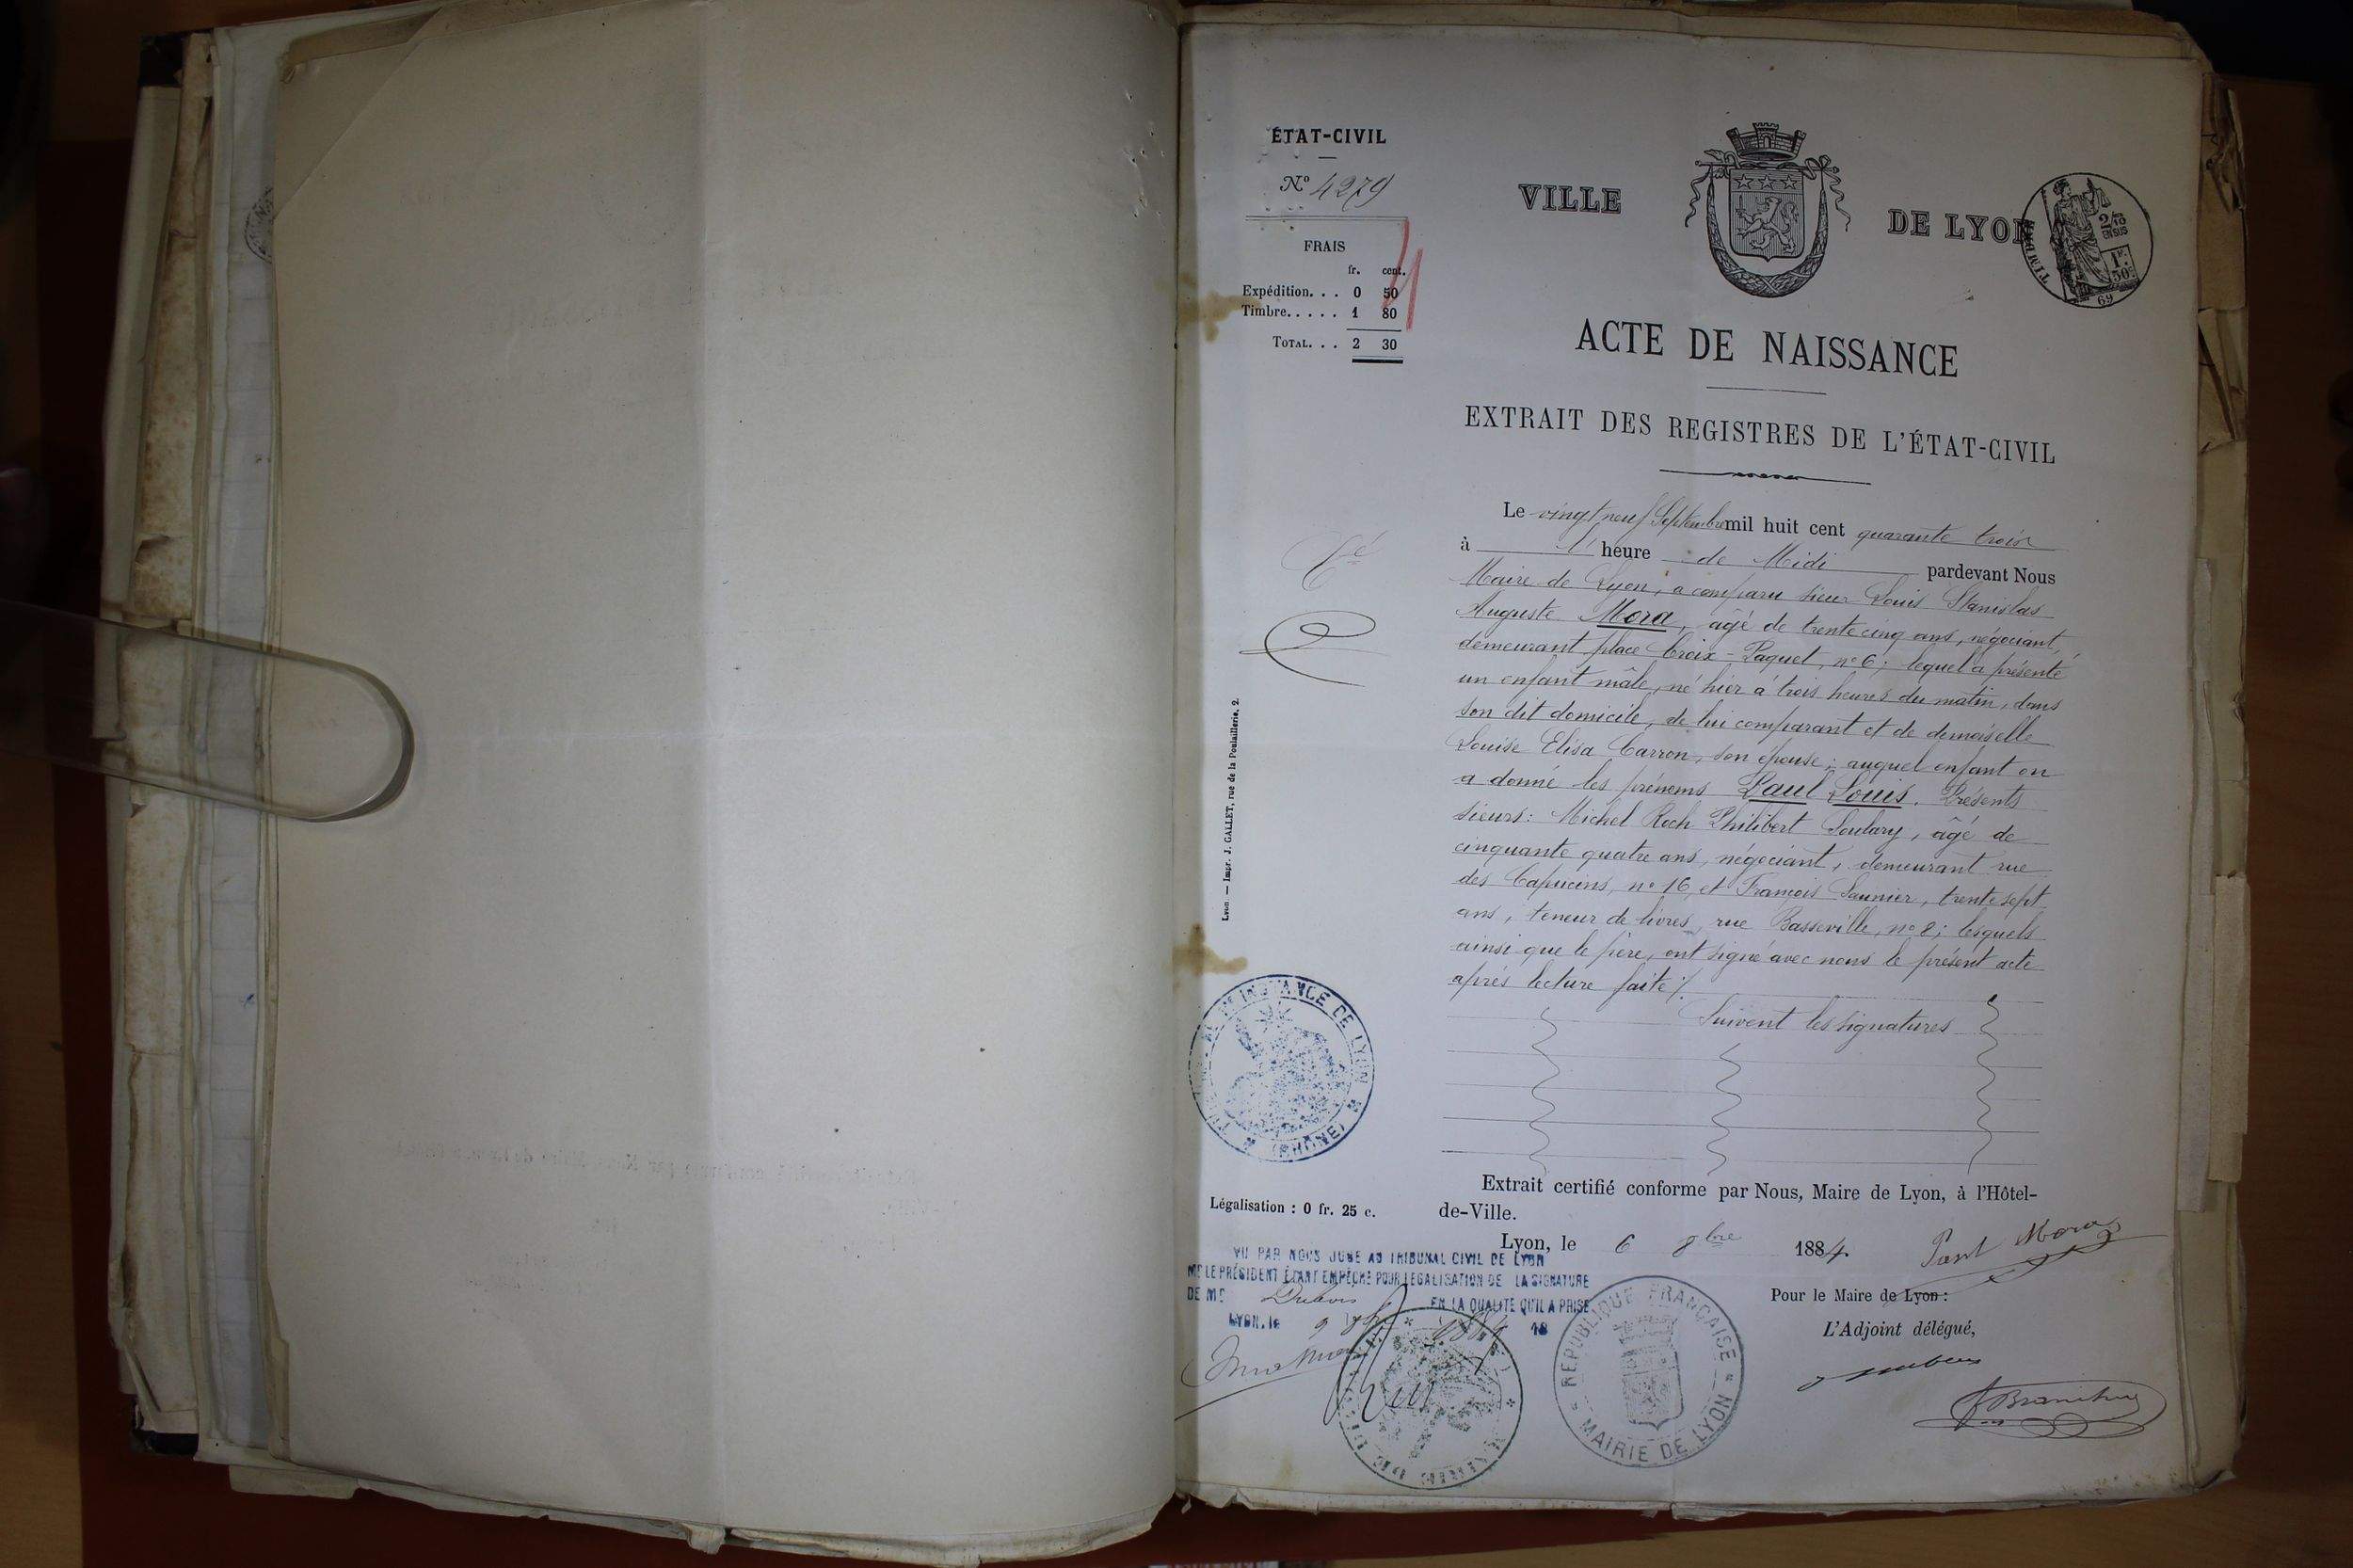 ÉTAT-CIVIL
N.º 4279
FRAIS
fr. cent.
Expédition. . . 0 50
Timbre. . . . . 1 80
TOTAL. . . 2 30
VILLE DE LYON
TIMBRE
2/10 EN SUS
1F. 50C.
69
ACTE DE NAISSANCE
EXTRAIT DES REGISTRES DE L'ÉTAT-CIVIL
Le vingt neuf Septembre mil huit cent quarante trois
à l' heure de Midi pardevant Nous
Maire de Lyon, a comparu sieur Louis Stanislas
Auguste Mora, âgé de trente cinq ans, négociant,
demeurant place Croix-Paquet, nº 6; lequel a présenté
un enfant mâle, né hier à trois heures du matin, dans
son dit domicile, de lui comparant et de demoiselle
Louise Elisa Carron, son épouse; auquel enfant on
a donné les prénoms Paul Louis. Présents
sieurs: Michel Roch Philibert Soulary, âgé de
cinquante quatre ans, négociant, demeurant rue
des Capucins, nº 16, et François Saunier, trente sept
ans, teneur de livres, rue Basseville, nº 8; lesquels
ainsi que le père, ont signé avec nous le présent acte
après lecture faite %.
Suivent les signatures
Lyon. — Impr. J. GALLET, rue de la Poulaillerie, 2.
INSTANCE DE LYON
(RHÔNE)
Extrait certifié conforme par Nous, Maire de Lyon, à l'Hôtel-
de-Ville.
Légalisation : 0 fr. 25 c.
Lyon, le 6 8bre 1884.
Paul Mora
VU PAR NOUS JUGE AU TRIBUNAL CIVIL DE LYON
MR LE PRÉSIDENT ÉTANT EMPÊCHÉ POUR LÉGALISATION DE LA SIGNATURE
DE MR Dubois EN LA QUALITÉ QU'IL A PRISE
LYON, le 9 8bre 1884 18
Pour le Maire de Lyon :
L'Adjoint délégué,
RÉPUBLIQUE FRANÇAISE
MAIRIE DE LYON